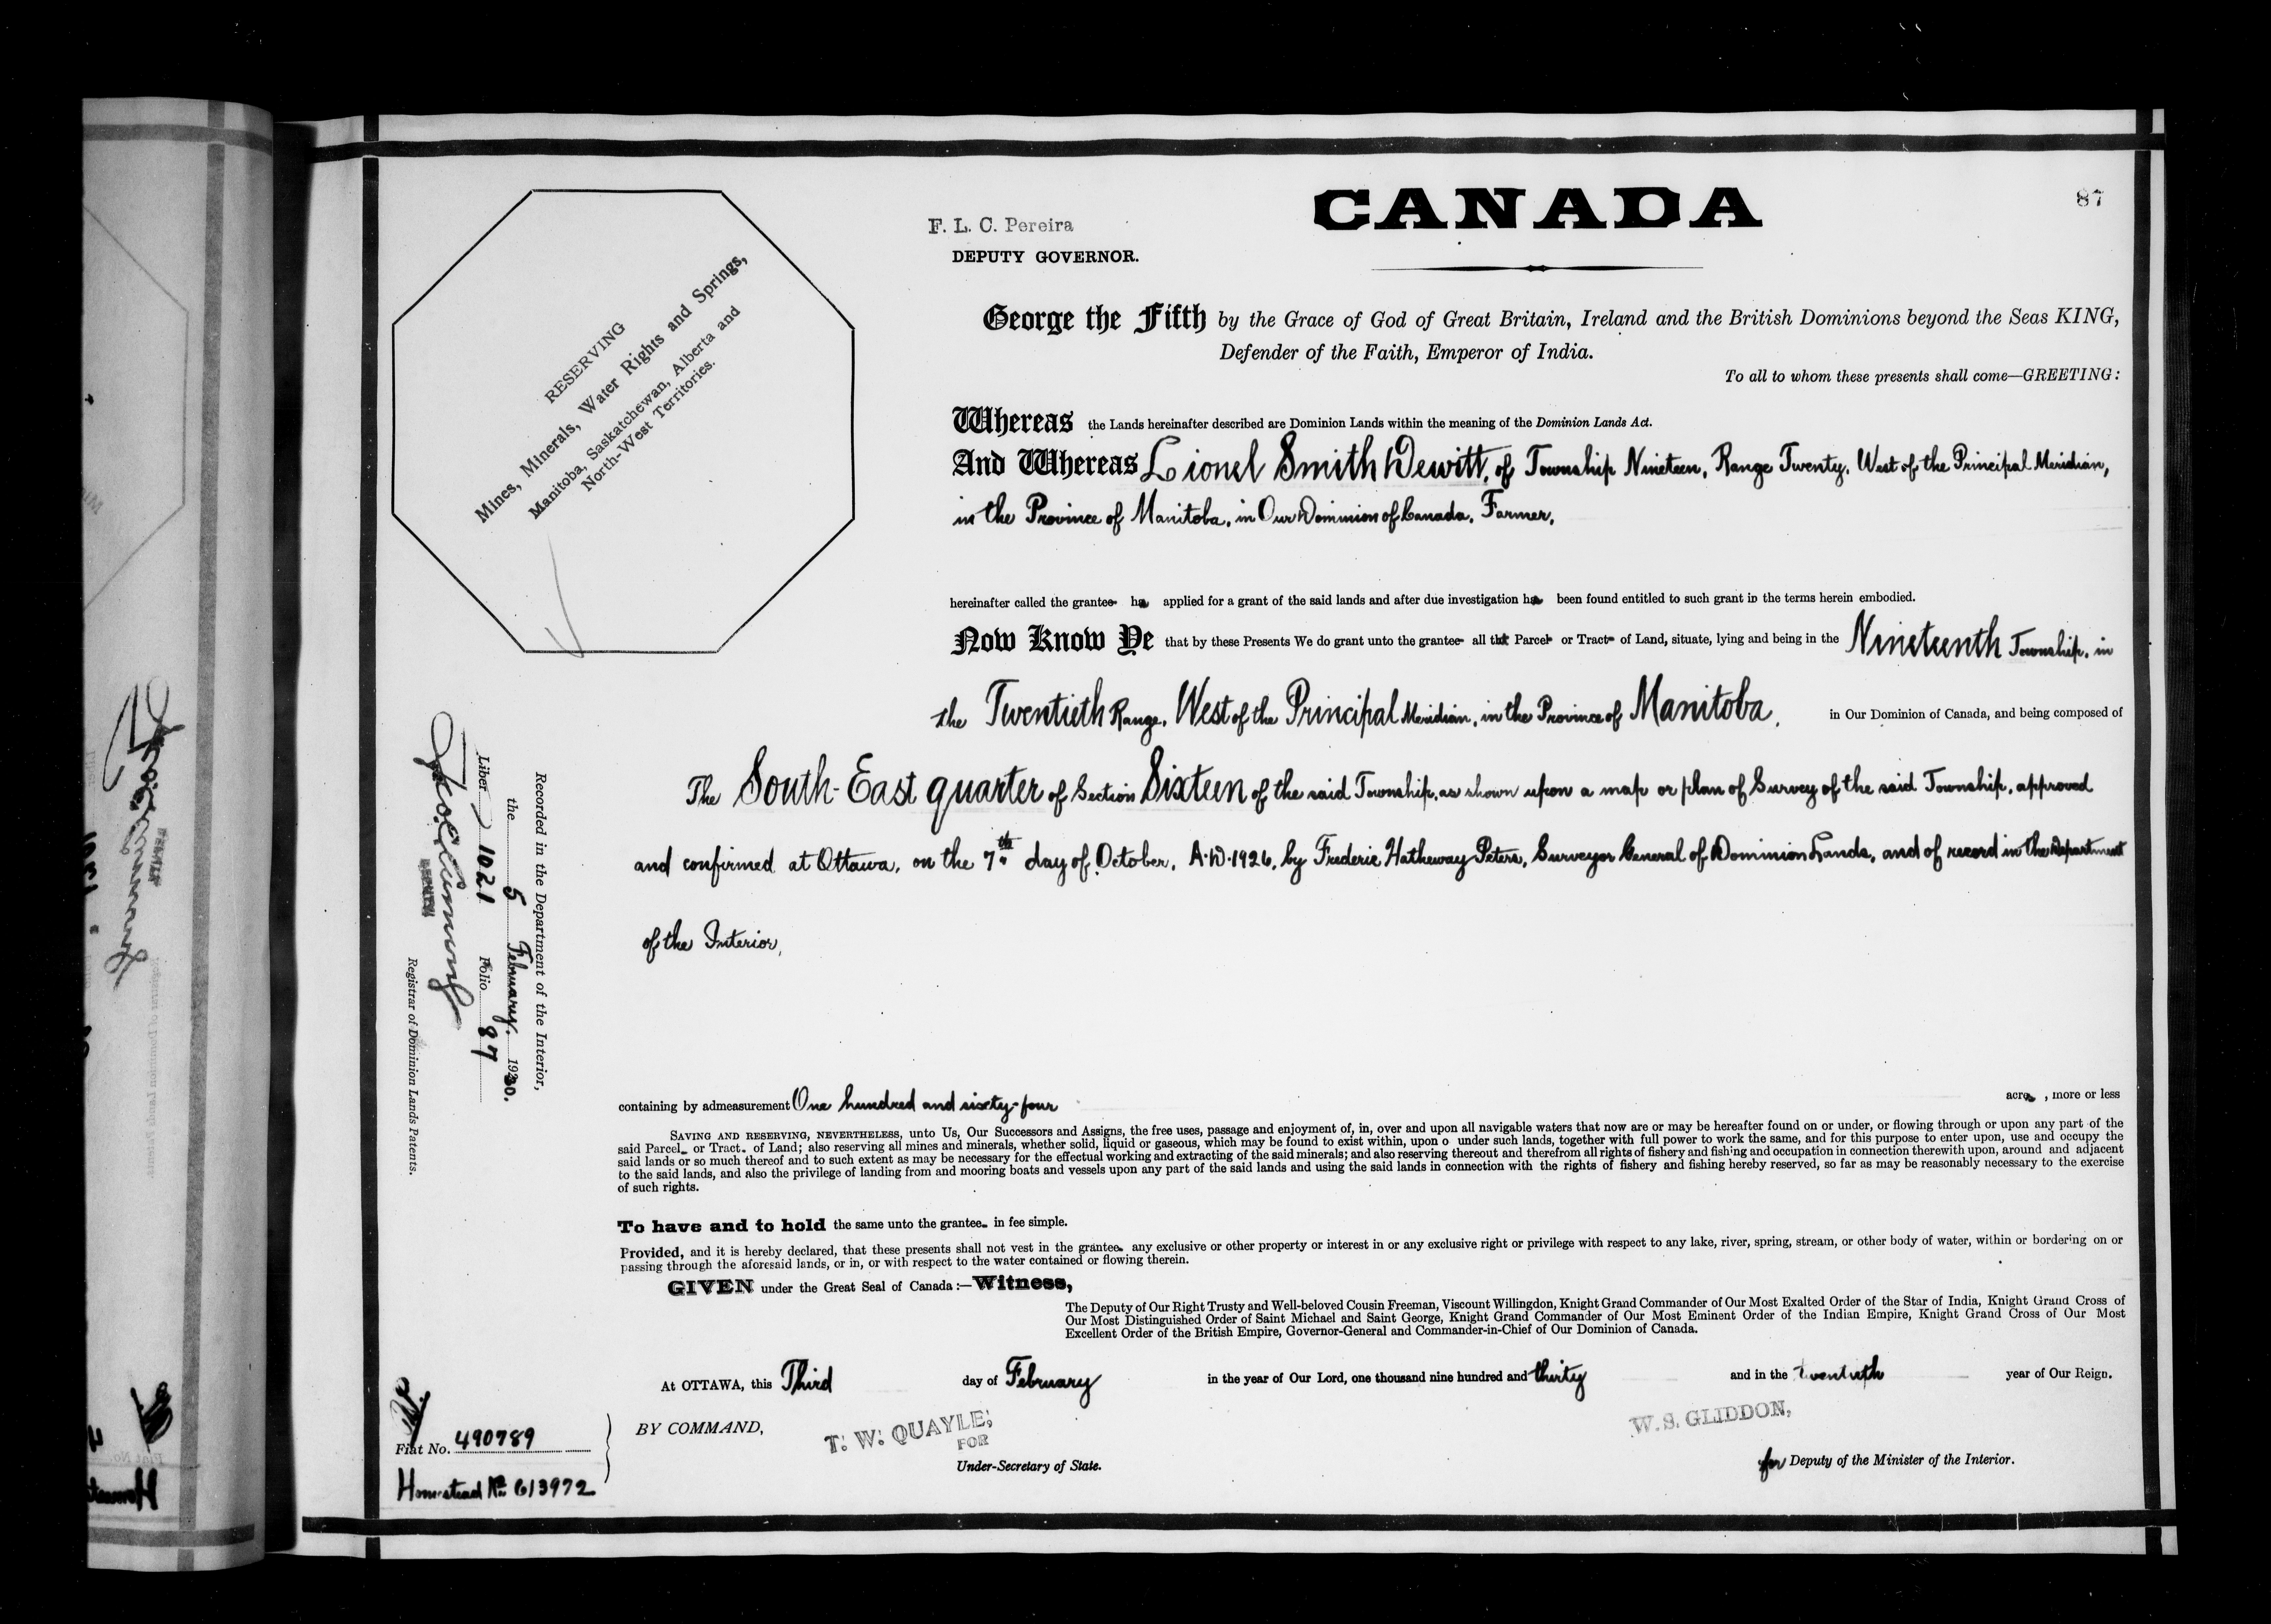 CANADA
87
F. L. C. Pereira
DEPUTY GOVERNOR.
RESERVING
Mines, Minerals, Water Rights and Springs,
Manitoba, Saskatchewan, Alberta and
North-West Territories.
George the Fifth by the Grace of God of Great Britain, Ireland and the British Dominions beyond the Seas KING,
Defender of the Faith, Emperor of India.
To all to whom these presents shall come—GREETING:
Whereas the Lands hereinafter described are Dominion Lands within the meaning of the Dominion Lands Act.
And Whereas Lionel Smith Dewitt, of Township Nineteen, Range Twenty, West of the Principal Meridian,
in the Province of Manitoba, in Our Dominion of Canada, Farmer,
hereinafter called the grantee has applied for a grant of the said lands and after due investigation has been found entitled to such grant in the terms herein embodied.
Now Know Ye that by these Presents We do grant unto the grantee all that Parcel or Tract of Land, situate, lying and being in the Nineteenth Township, in
the Twentieth Range, West of the Principal Meridian, in the Province of Manitoba, in Our Dominion of Canada, and being composed of
The South-East quarter of Section Sixteen of the said Township, as shown upon a map or plan of Survey of the said Township, approved
and confirmed at Ottawa, on the 7th day of October, A.D. 1926, by Frederic Hatheway Peters, Surveyor General of Dominion Lands, and of record in the Department
of the Interior,
containing by admeasurement One hundred and sixty-four acres, more or less
SAVING AND RESERVING, NEVERTHELESS, unto Us, Our Successors and Assigns, the free uses, passage and enjoyment of, in, over and upon all navigable waters that now are or may be hereafter found on or under, or flowing through or upon any part of the
said Parcel or Tract of Land; also reserving all mines and minerals, whether solid, liquid or gaseous, which may be found to exist within, upon o under such lands, together with full power to work the same, and for this purpose to enter upon, use and occupy the
said lands or so much thereof and to such extent as may be necessary for the effectual working and extracting of the said minerals; and also reserving thereout and therefrom all rights of fishery and fishing and occupation in connection therewith upon, around and adjacent
to the said lands, and also the privilege of landing from and mooring boats and vessels upon any part of the said lands and using the said lands in connection with the rights of fishery and fishing hereby reserved, so far as may be reasonably necessary to the exercise
of such rights.
To have and to hold the same unto the grantee in fee simple.
Provided, and it is hereby declared, that these presents shall not vest in the grantee any exclusive or other property or interest in or any exclusive right or privilege with respect to any lake, river, spring, stream, or other body of water, within or bordering on or
passing through the aforesaid lands, or in, or with respect to the water contained or flowing therein.
GIVEN under the Great Seal of Canada:—Witness,
The Deputy of Our Right Trusty and Well-beloved Cousin Freeman, Viscount Willingdon, Knight Grand Commander of Our Most Exalted Order of the Star of India, Knight Grand Cross of
Our Most Distinguished Order of Saint Michael and Saint George, Knight Grand Commander of Our Most Eminent Order of the Indian Empire, Knight Grand Cross of Our Most
Excellent Order of the British Empire, Governor-General and Commander-in-Chief of Our Dominion of Canada.
At OTTAWA, this Third day of February in the year of Our Lord, one thousand nine hundred and thirty and in the twentieth year of Our Reign.
BY COMMAND,
T. W. QUAYLE,
FOR
Under-Secretary of State.
W. S. GLIDDON,
for Deputy of the Minister of the Interior.
Recorded in the Department of the Interior,
the 5 February. 1930.
Liber 1021 Folio 87
Registrar of Dominion Lands Patents.
Fiat No. 490789
Homestead No 613972